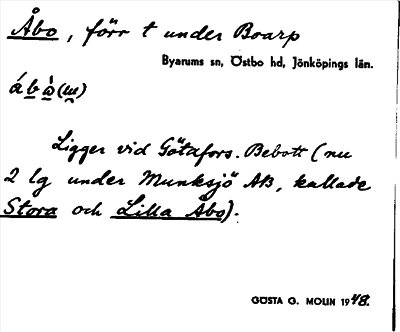 Åbo, förr t under Boarp
Byarums sn, Östbo hd, Jönköpings län.
Ligger vid Götafors. Bebott (nu
2 lg under Munksjö AB, kallade
Stora och Lilla Åbo).
GÖSTA G. MOLIN 1948.